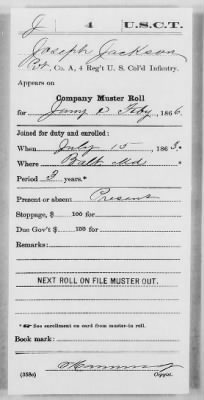 J 4 U.S.C.T.
Joseph Jackson
Pvt, Co. A, 4 Reg't U. S. Col'd Infantry.
Appears on
Company Muster Roll
for Jany & Feby, 1866.
Joined for duty and enrolled:
When July 15, 1863.*
Where Balt. Md *
Period 3 years.*
Present or absent Present
Stoppage, $ 100 for
Due Gov't $ 100 for
Remarks:
NEXT ROLL ON FILE MUSTER OUT.
* See enrollment on card from muster-in roll.
Book mark:
(358c) Copyist.